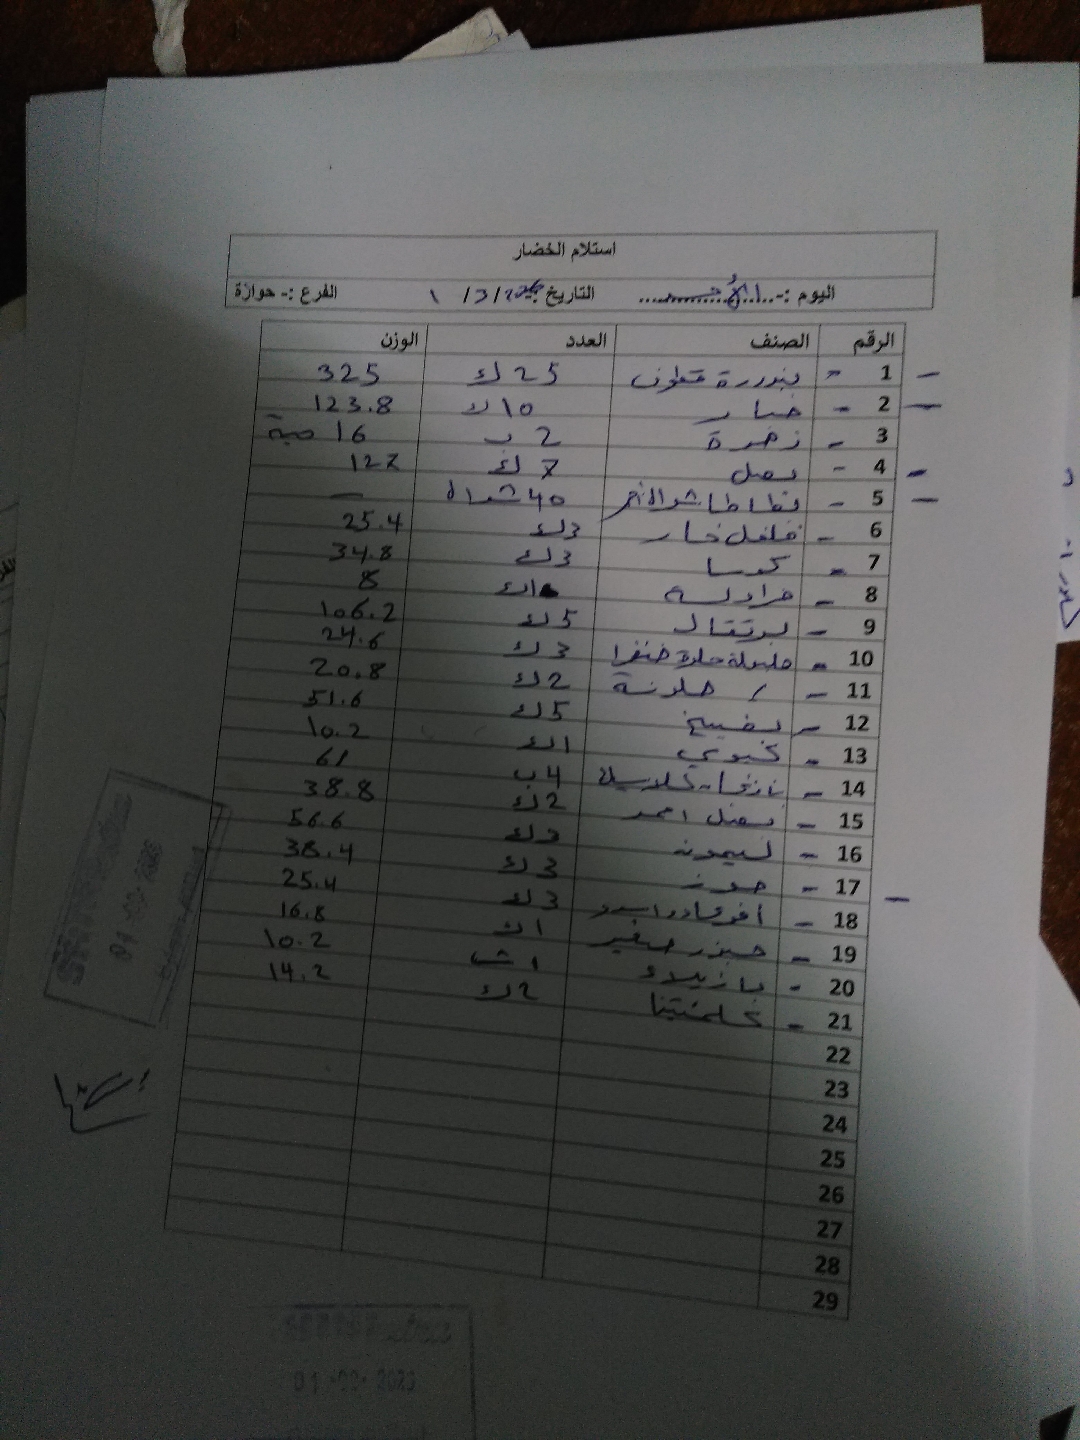 استلام الخضار
اليوم :- الأحد التاريخ :- 1 /3/2026 الفرع :- حوازة
الرقم الصنف العدد الوزن
1 - بندورة قطوف 25 ك 325
2 - خيار 10 ك 123.8
3 - زهرة 2 ب 16 حبة
4 - بصل 7 ك 127
5 - بطاطا شوال احمر 40 شوال —
6 - فلفل حار 3 ك 25.4
7 - كوسا 3 ك 34.8
8 - 1 ك 8
9 - برتقال 5 ك 106.2
10 - حلوة خضرا 3 ك 24.6
11 - / ملونة 2 ك 20.8
12 - بطيخ 5 ك 51.6
13 - كيوي 1 ك 10.2
14 - 4 ب 61
15 - بصل احمر 2 ك 38.8
16 - ليمون 3 ك 56.6
17 - موز 3 ك 38.4
18 - أفوكادو 3 ك 25.4
19 - جزر صغير 1 ك 16.8
20 - بازيلاء 1 ش 10.2
21 - كلمنتينا 2 ك 14.2
22
23
24
25
26
27
28
29